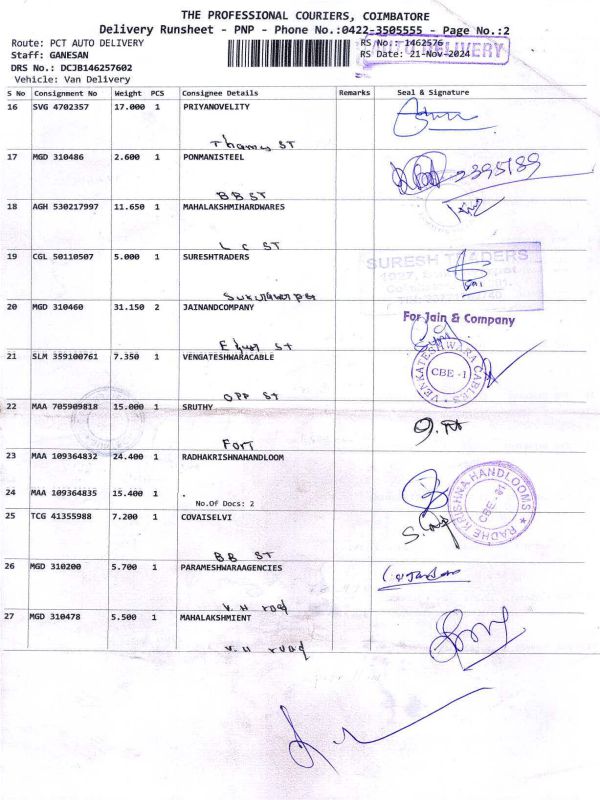 THE PROFESSIONAL COURIERS, COIMBATORE
Delivery Runsheet - PNP - Phone No.:0422-3505555 - Page No.:2
Route: PCT AUTO DELIVERY
RS No.: 1462576
Staff: GANESAN
RS Date: 21-Nov-2024
DRS No.: DCJB146257602
Vehicle: Van Delivery
S No Consignment No Weight PCS Consignee Details Remarks Seal & Signature
16 SVG 4702357 17.000 1 PRIYANOVELITY
ST
17 MGD 310486 2.600 1 PONMANISTEEL
395189
BB ST
18 AGH 530217997 11.650 1 MAHALAKSHMIHARDWARES
L C ST
19 CGL 50110507 5.000 1 SURESHTRADERS
SURESH TRADERS
20 MGD 310460 31.150 2 JAINANDCOMPANY
For Jain & Company
St
21 SLM 359100761 7.350 1 VENGATESHWARACABLE
VENKATESHWARA CABLES
CBE - I
OPP St
22 MAA 705909818 15.000 1 SRUTHY
Fort
23 MAA 109364832 24.400 1 RADHAKRISHNAHANDLOOM
RADHE KRISHNA HANDLOOMS
24 MAA 109364835 15.400 1 .
No.Of Docs: 2
25 TCG 41355988 7.200 1 COVAISELVI
BB ST
26 MGD 310200 5.700 1 PARAMESHWARAAGENCIES
V. H road
27 MGD 310478 5.500 1 MAHALAKSHMIENT
V. H road